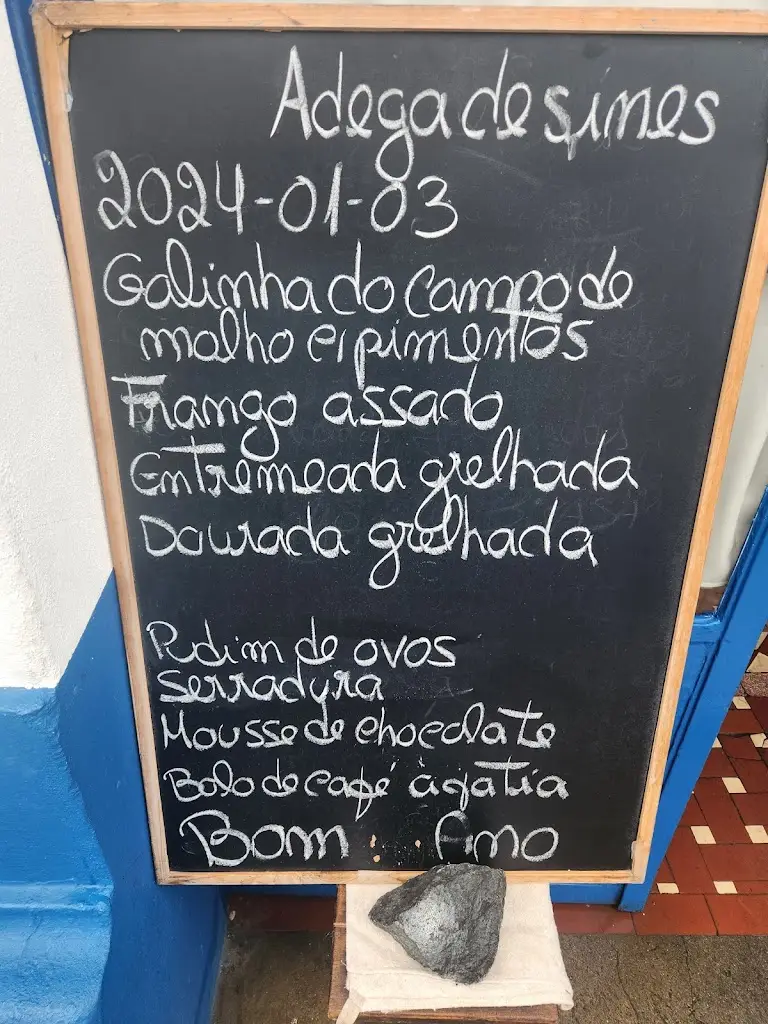 Adega de sines
2024-01-03
Galinha do campo de
molho e pimentos
Frango assado
Entremeada grelhada
Dourada grelhada
Pudim de ovos
serradura
Mousse de chocolate
Bolo de café à gatia
Bom Ano